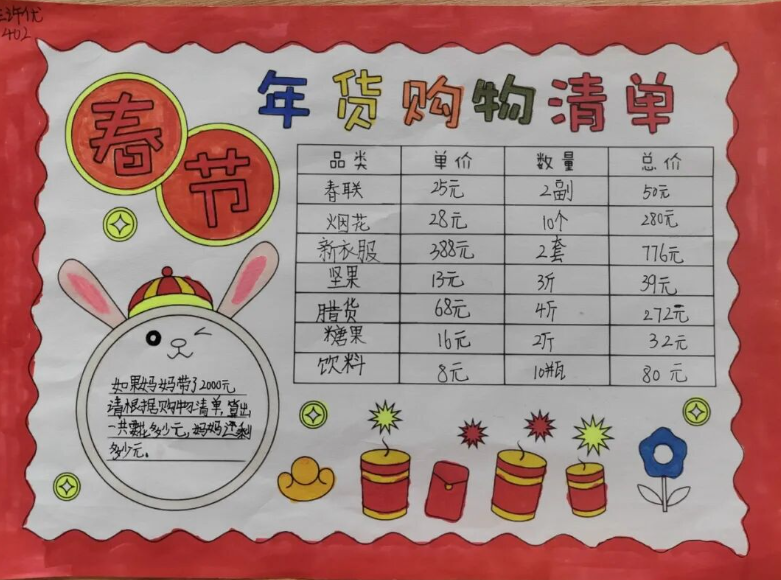 402
春节
年货购物清单
品类 单价 数量 总价
春联 25元 2副 50元
烟花 28元 10个 280元
新衣服 388元 2套 776元
坚果 13元 3斤 39元
腊货 68元 4斤 272元
糖果 16元 2斤 32元
饮料 8元 10瓶 80元
如果妈妈带了2000元
请根据购物清单,算出
一共要花多少元,妈妈还剩
多少元。